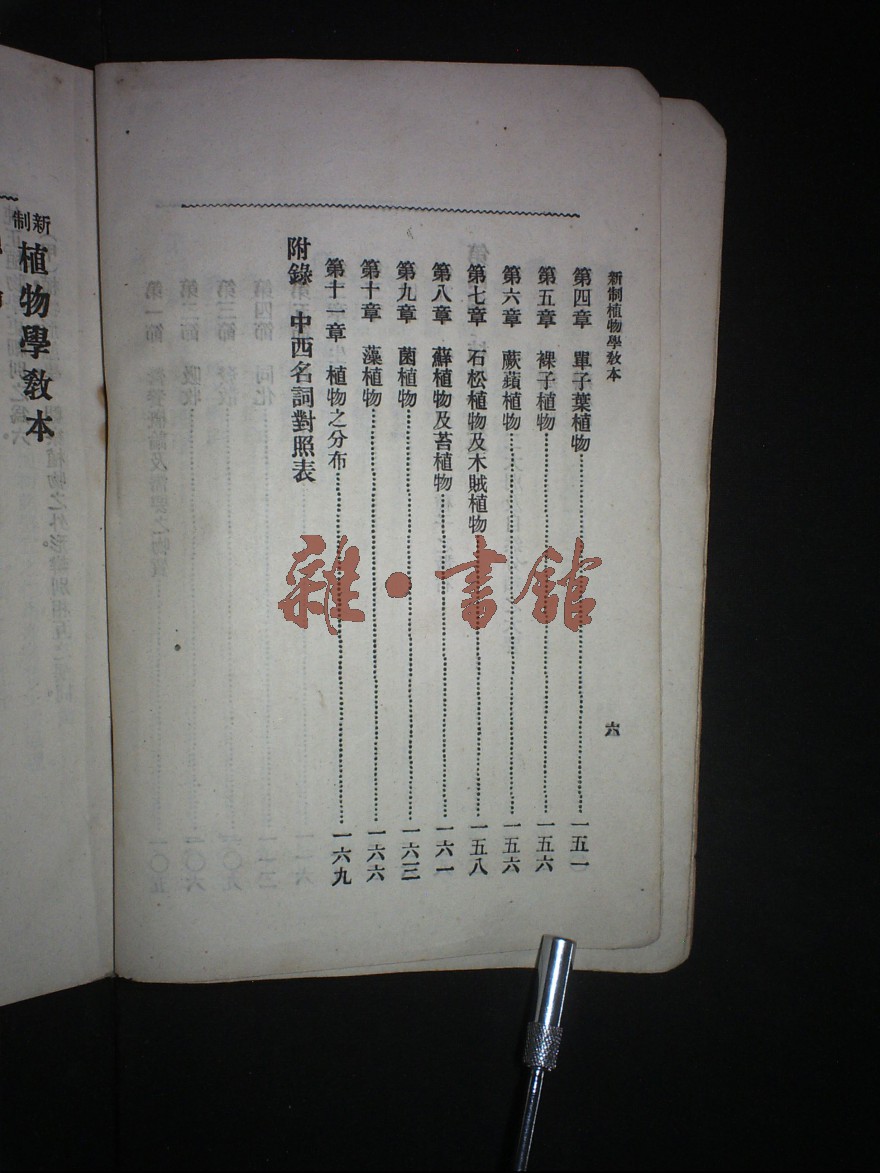 新制植物學教本
六
第四章 單子葉植物 一五一
第五章 裸子植物 一五六
第六章 蕨蘋植物 一五六
第七章 石松植物及木賊植物 一五八
第八章 蘚植物及苔植物 一六一
第九章 菌植物 一六三
第十章 藻植物 一六六
第十一章 植物之分布 一六九
附錄 中西名詞對照表
新制植物學教本
雜·書館